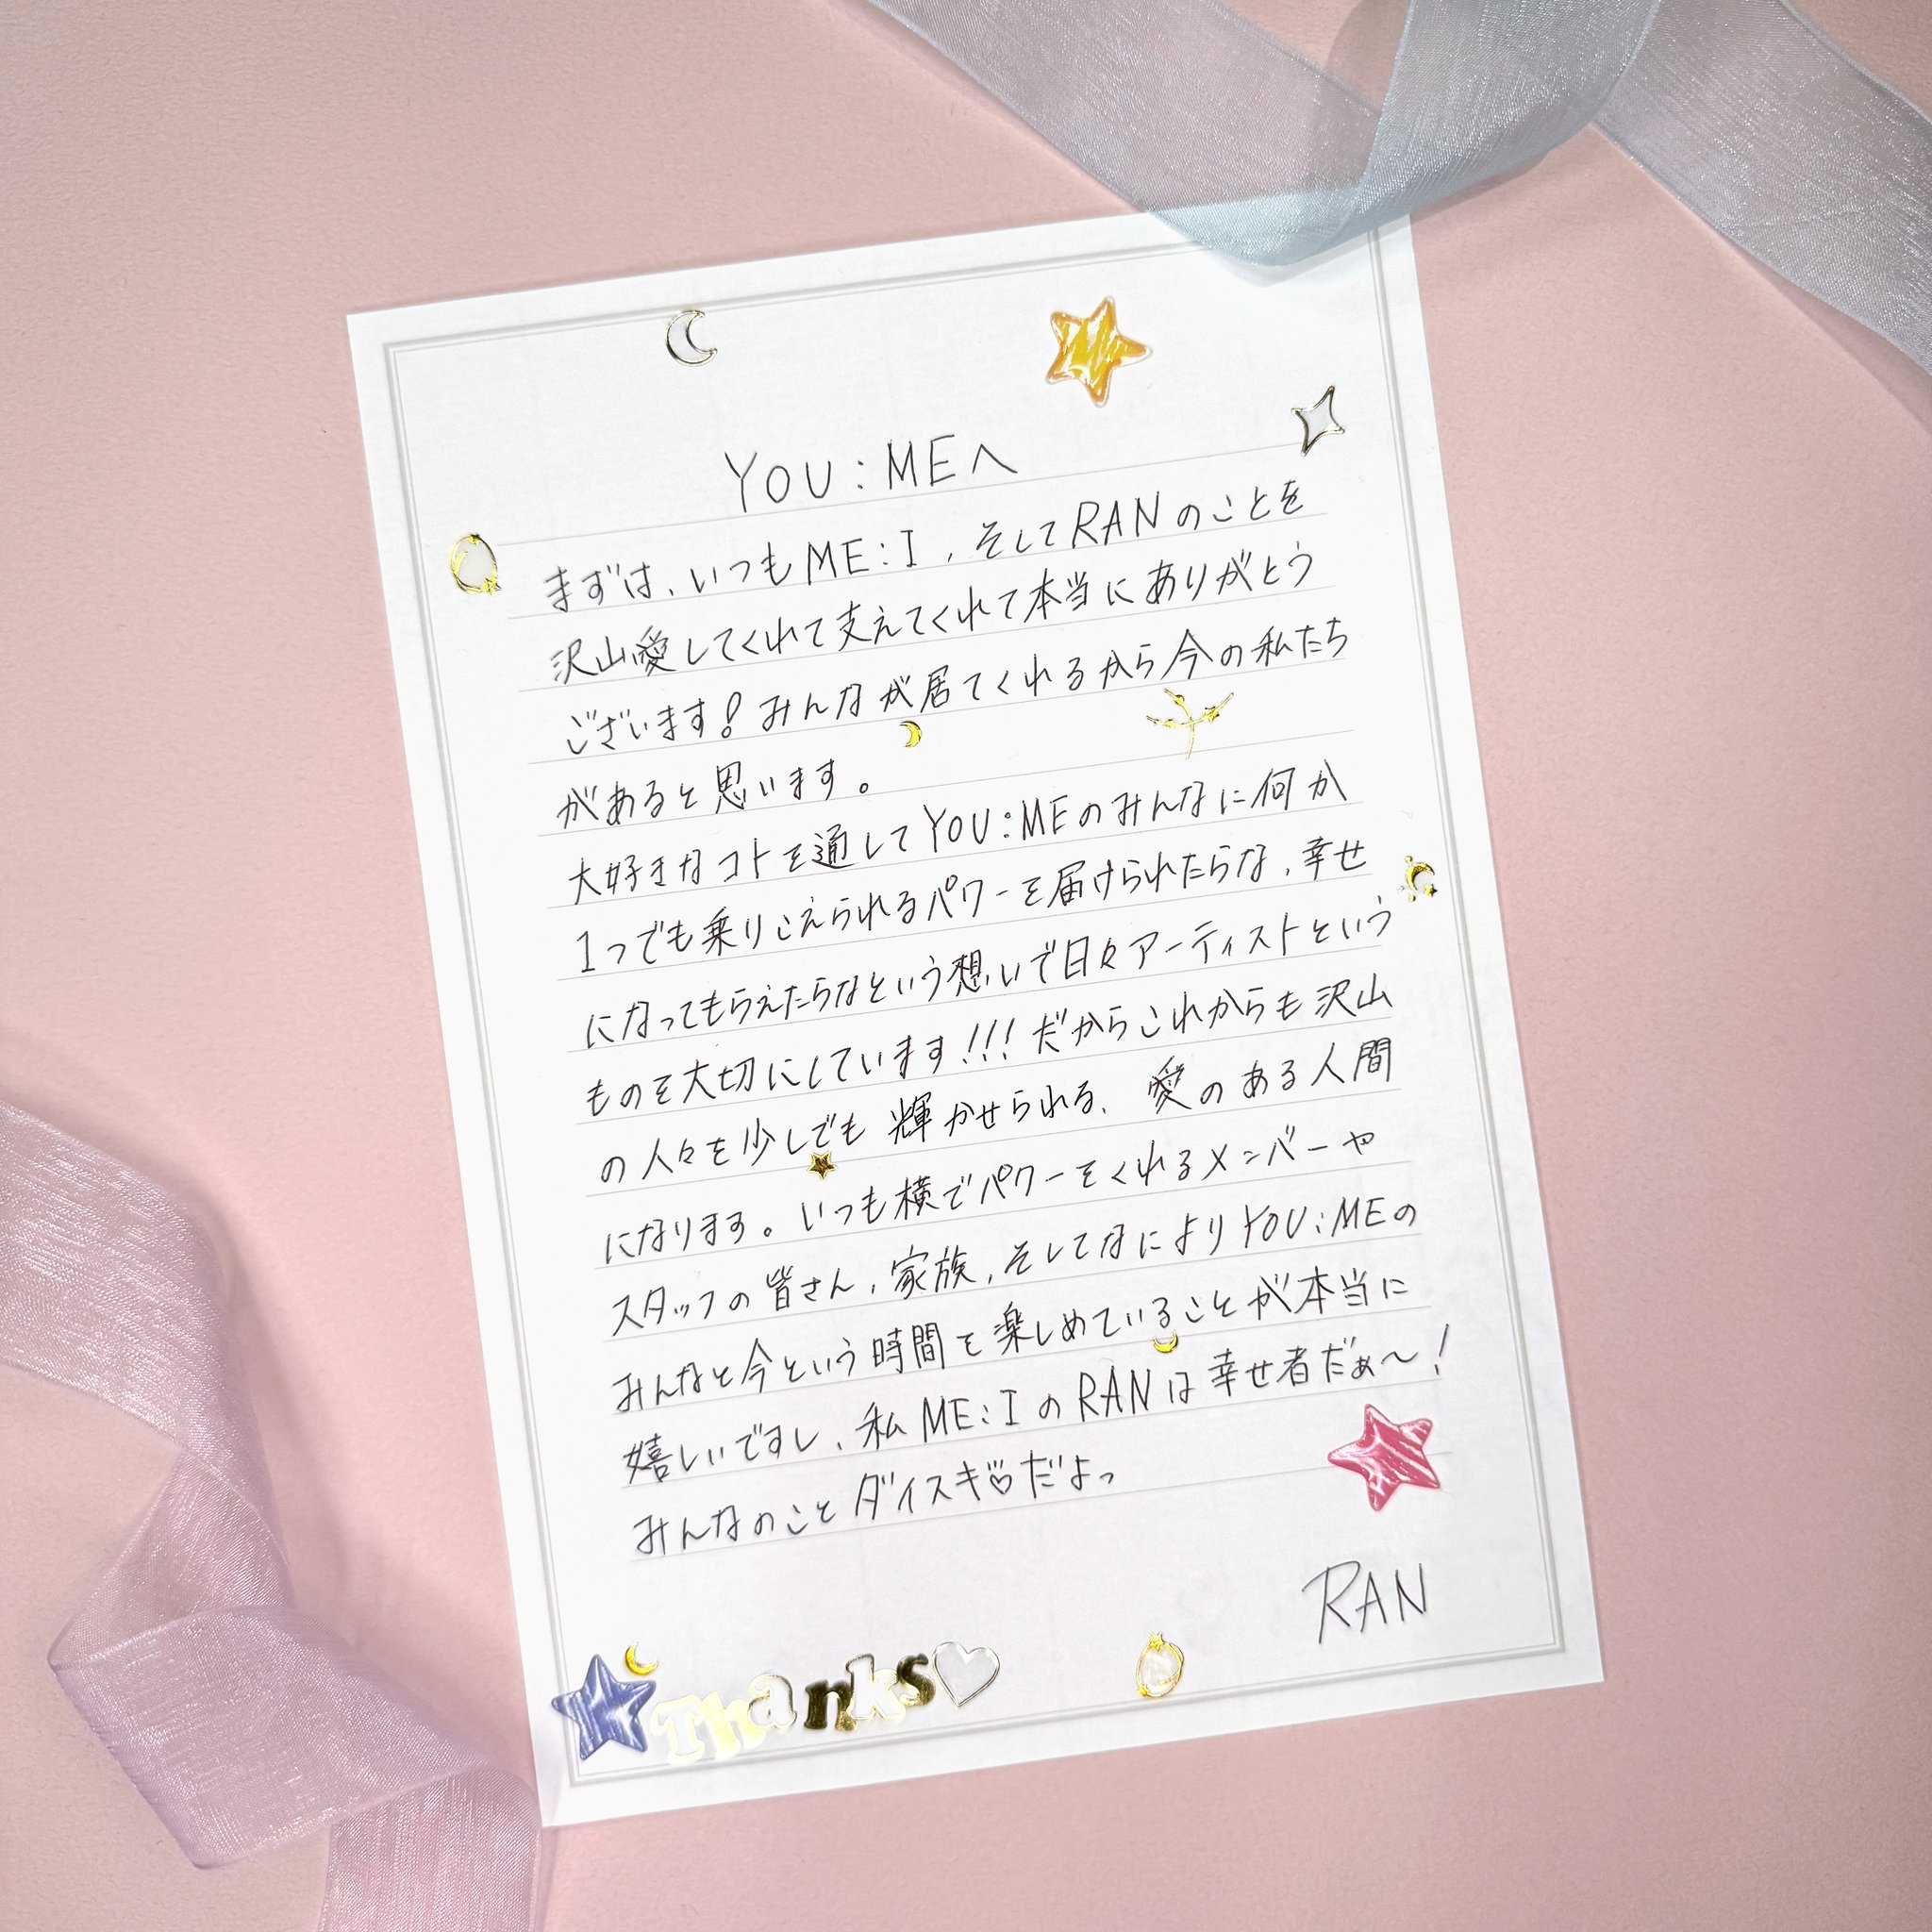 YOU:MEへ
まずは、いつもME:I、そしてRANのことを
沢山愛してくれて支えてくれて本当にありがとう
ございます!みんなが居てくれるから今の私たち
があると思います。
大好きなコトを通してYOU:MEのみんなに何か
1つでも乗りこえられるパワーを届けられたらな、幸せ
になってもらえたらなという想いで日々アーティストという
ものを大切にしています!!!だからこれからも沢山
の人々を少しでも輝かせられる、愛のある人間
になります。いつも横でパワーをくれるメンバーや
スタッフの皆さん、家族、そしてなによりYOU:MEの
みんなと今という時間を楽しめていることが本当に
嬉しいですし、私ME:IのRANは幸せ者だぁ〜!
みんなのことダイスキ♡だよっ
RAN
Thanks